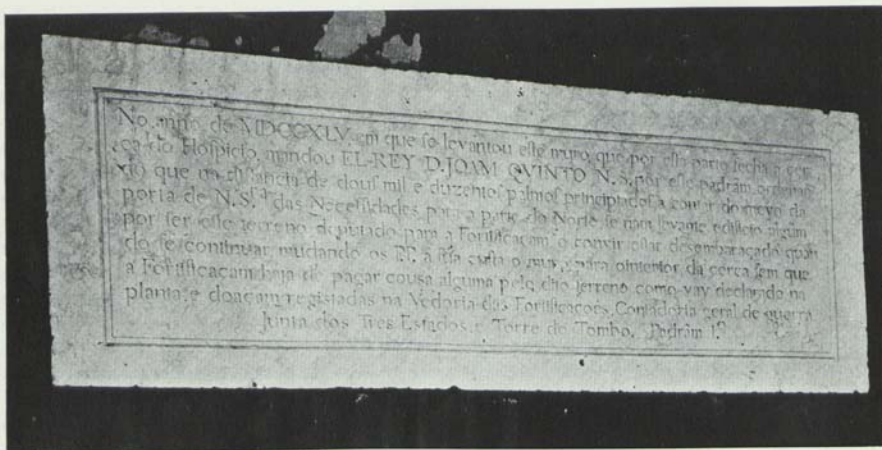 No anno de MDCCXLV. em que se levantou este muro, que por esta parte fecha a cer-
ca do Hospicio, mandou EL-REY D. JOAM QVINTO N. S. por este padrãm ordenan-
do que na distancia de dous mil e duzentos palmos principiados a contar do meyo da
porta de N. S.ª das Necessidades para a parte do Norte se nam levante edificio algum
por ser este terreno deputado para a Fortificaçam, e convir estar desembaraçado quan-
do se continuar, mudando os PP. á sua custa o muro para o interior da cerca sem que
a Fortificaçam haja de pagar cousa alguma pelo dito terreno como vay declarado na
planta, e doaçam registadas na Vedoria das Fortificaçoẽs, Contadoria geral de guerra
Junta dos Tres Estados, e Torre do Tombo. Padrãm 1.º